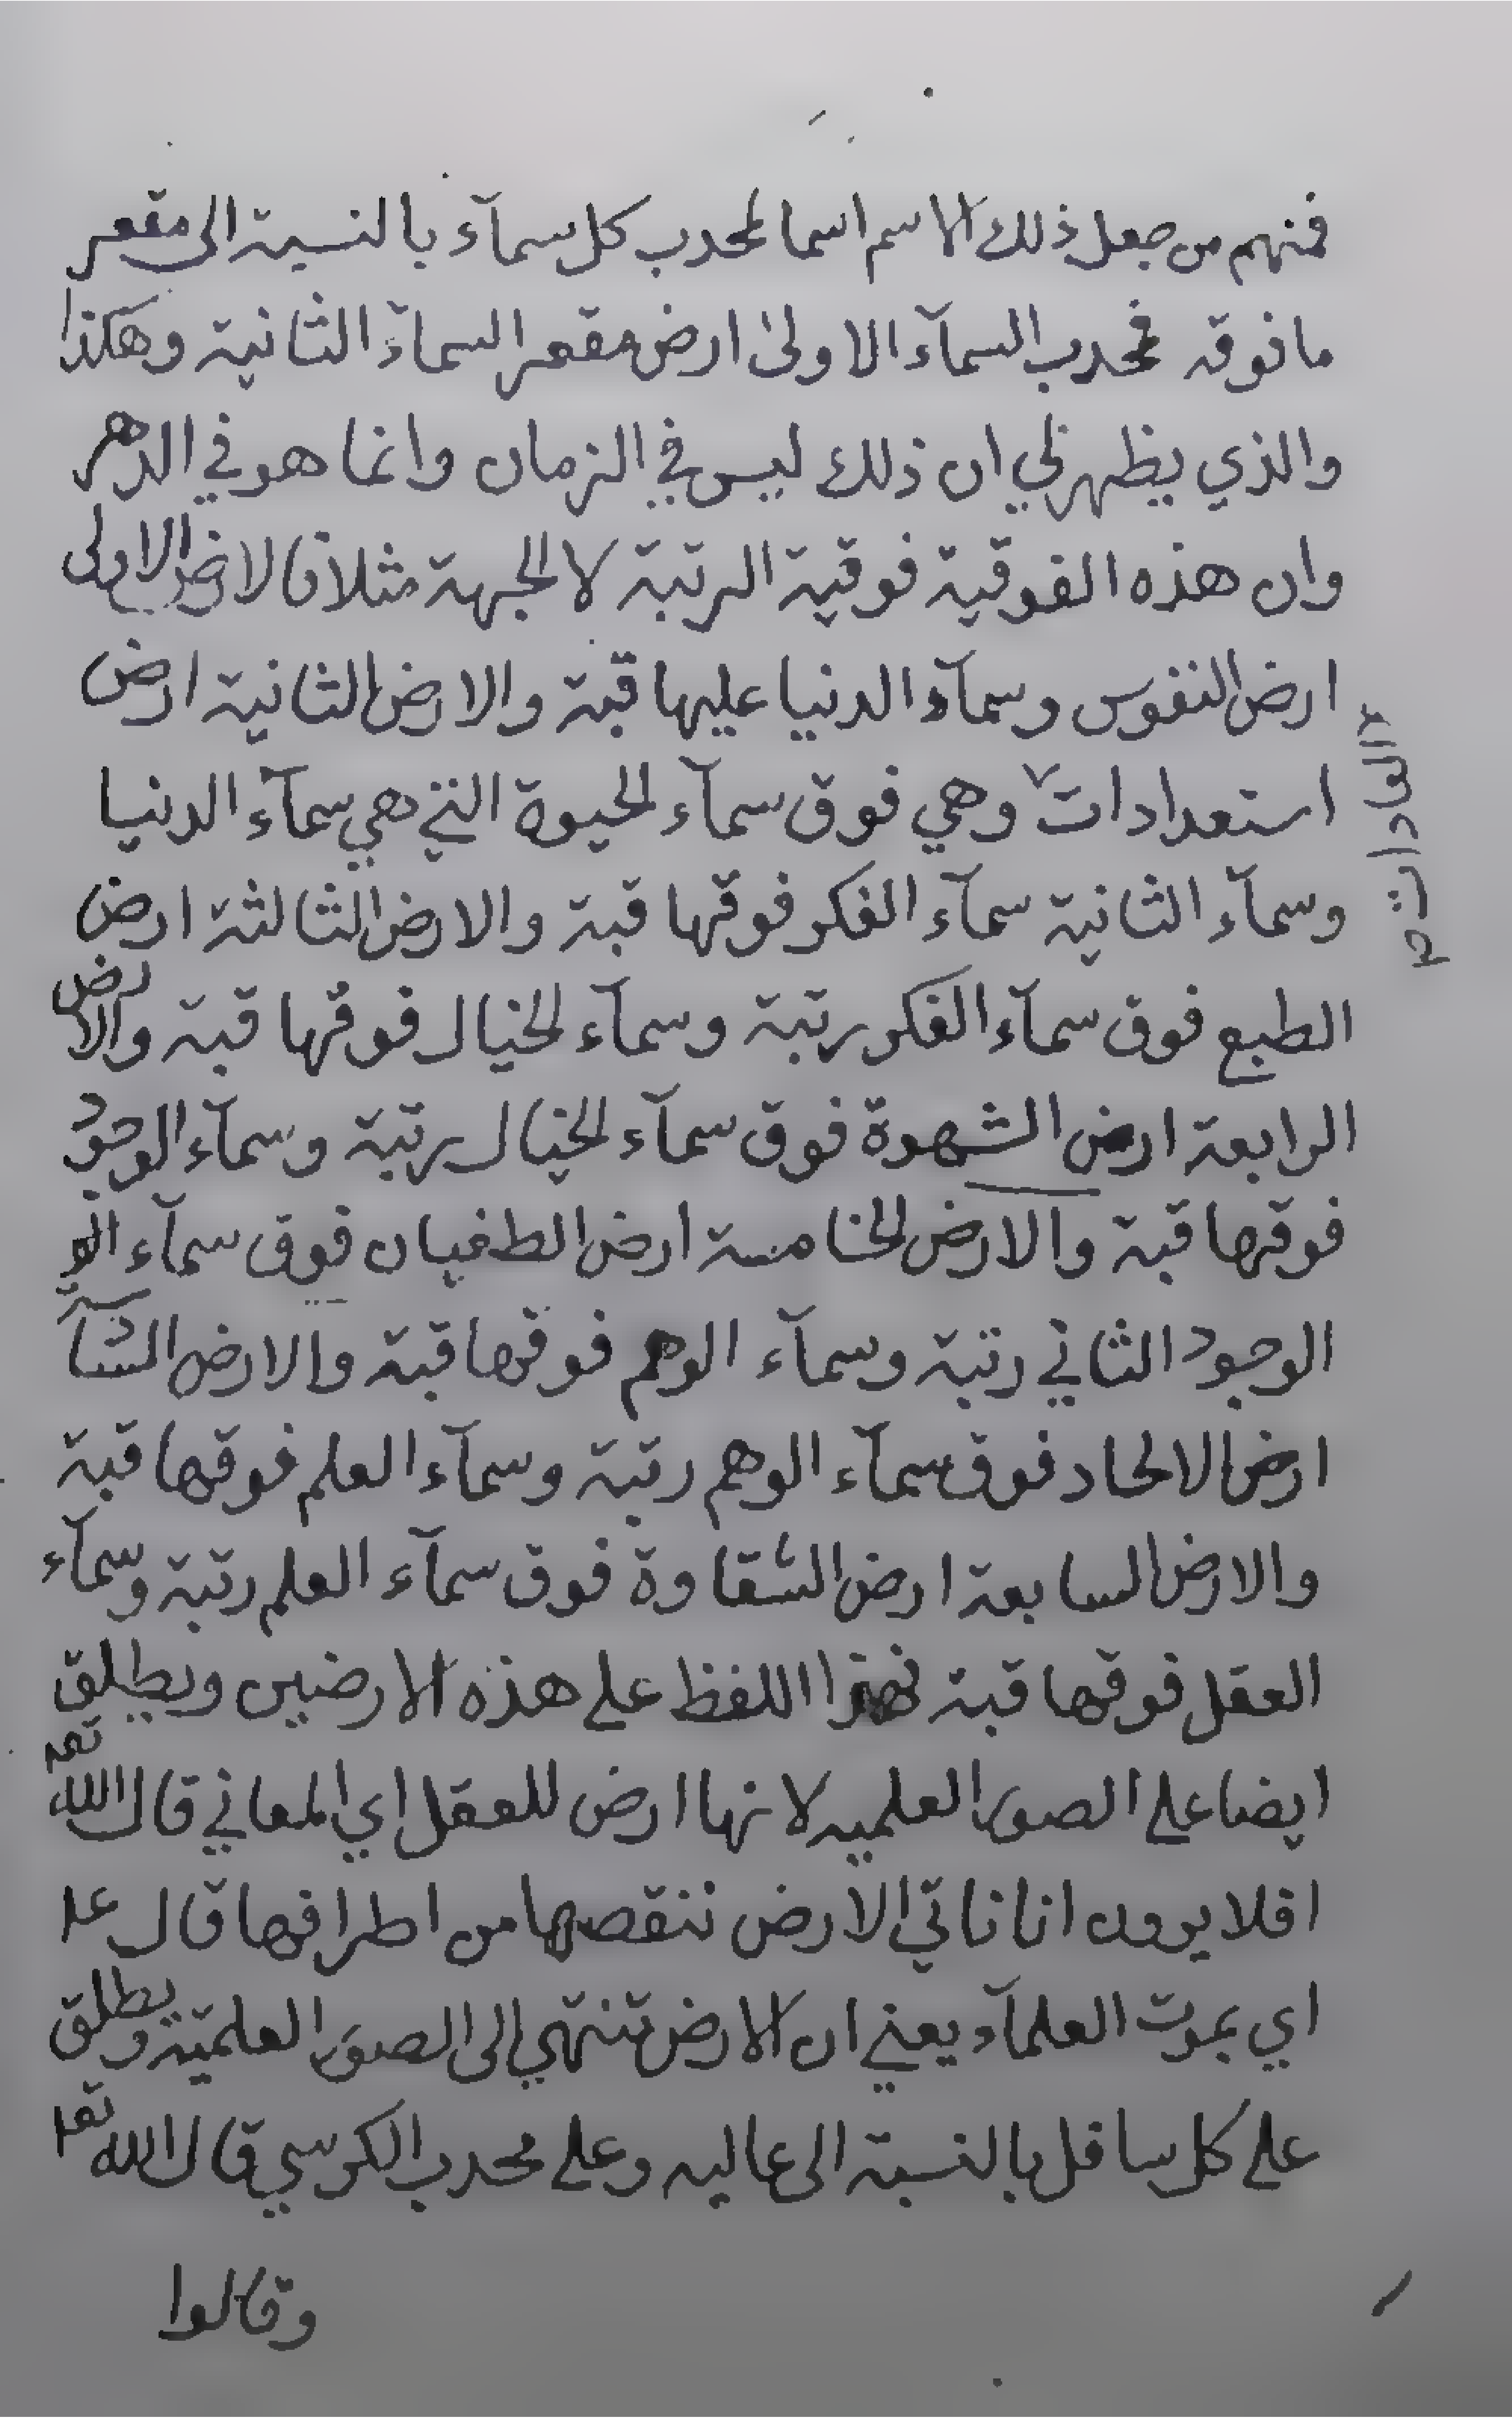 فمنهم من جعل ذلك الاسم اسما لمحدب كل سمآء بالنسبة الى مقعر
ما فوقه فمحدب السمآء الاولى ارض مقعر السمآء الثانية وهكذا
والذي يظهر لي ان ذلك ليس في الزمان وانما هو في الدهر
وان هذه الفوقية فوقية الرتبة لا الجهة مثلا فالارض الاولى
ارض النفوس وسمآء الدنيا عليها قبة والارض الثانية ارض
استعدادات وهي فوق سمآء الحيوة التي هي سمآء الدنيا
العادات
وسمآء الثانية سمآء الفكر فوقها قبة والارض الثالثة ارض
الطبع فوق سمآء الفكر رتبة وسمآء الخيال فوقها قبة والارض
الرابعة ارض الشهوة فوق سمآء الخيال رتبة وسمآء الوجود
فوقها قبة والارض الخامسة ارض الطغيان فوق سمآء الو
الوجود الثاني رتبة وسمآء الوهم فوقها قبة والارض السادسة
ارض الالحاد فوق سمآء الوهم رتبة وسمآء العلم فوقها قبة
والارض السابعة ارض الشقاوة فوق سمآء العلم رتبة وسمآء
العقل فوقها قبة فهذا اللفظ على هذه الارضين ويطلق
ايضا على الصور العلميه لانها ارض للعقل اي المعاني قال الله تعه
افلا يرون انا ناتي الارض ننقصها من اطرافها قال
اي بموت العلمآء يعني ان الارض تنتهي الى الصور العلميّة ويطلق
على كل سافل بالنسبة الى عاليه وعلى محدب الكرسي قال الله تعا
وقالوا